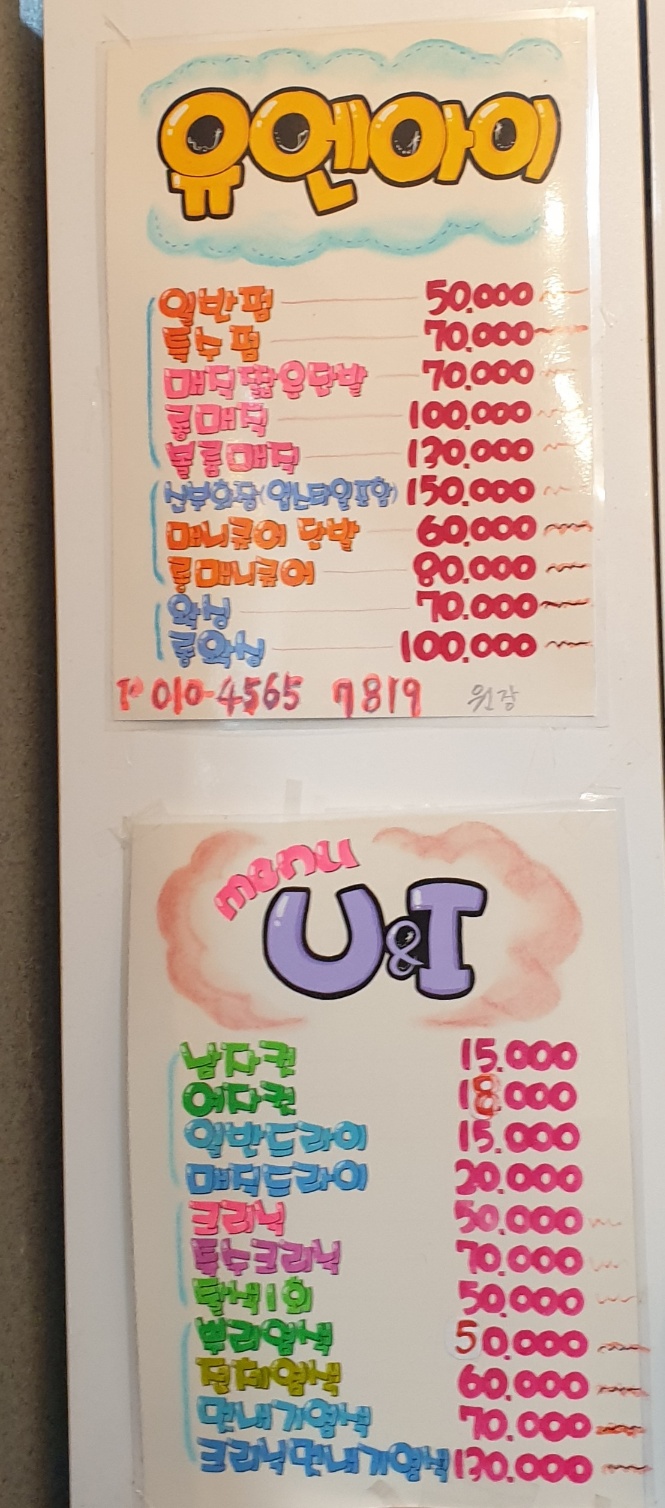 유엔아이
일반펌 50.000 ~
특수 펌 70.000 ~
매직짧은단발 70.000 ~
롱매직 100.000 ~
볼륨매직 130.000 ~
신부화장(업스타일포함) 150.000 ~
매니큐어 단발 60.000 ~
롱매니큐어 80.000 ~
왁싱 70.000 ~
롱왁싱 100.000 ~
010-4565 7819 원장
menu
U&I
남자컷 15.000
여자컷 18.000
일반드라이 15.000
매직드라이 20.000
크리닉 50.000 ~
특수크리닉 70.000 ~
탈색1회 50.000 ~
뿌리염색 50.000 ~
전체염색 60.000 ~
멋내기염색 70.000 ~
크리닉멋내기염색 130.000 ~